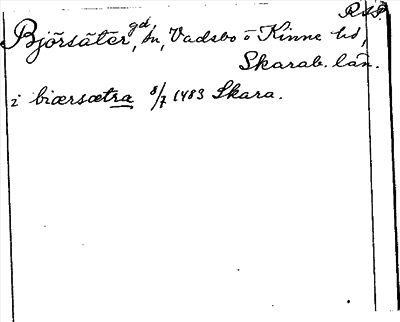 R A P.
Björsäter, gd, sn, Vadsbo o Kinne hd,
Skarab. län.
i biærsætra 8/7 1483 Skara.